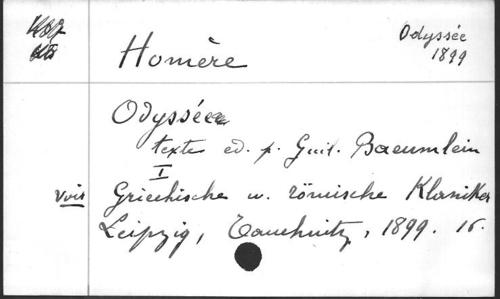 Homère
Odyssée
1899
Odyssée
texte ed. p. Guil. Baeumlein
I
Voir Griechische u. römische Klassiker
Leipzig, Tauchnitz, 1899. 16.